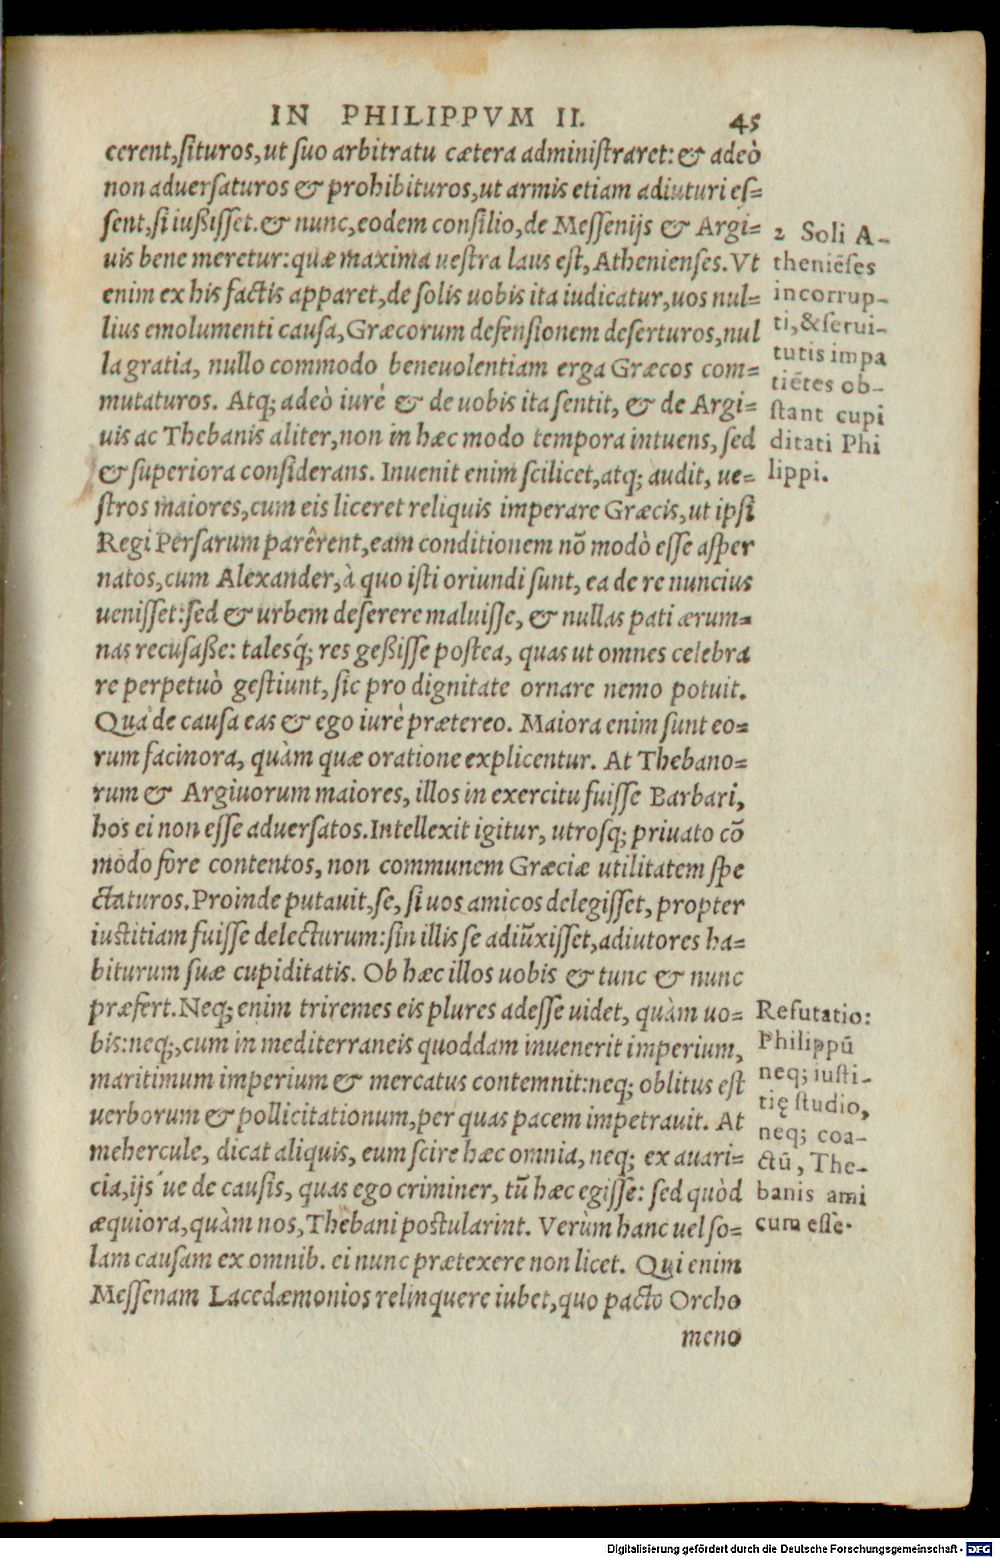 IN PHILIPPVM II. 45
cerent, situros, ut suo arbitratu cætera administraret: & adeò
non aduersaturos & prohibituros, ut armis etiam adiuturi es=
sent, si iußisset. & nunc, eodem consilio, de Messenijs & Argi=
uis bene meretur: quæ maxima uestra laus est, Athenienses. Vt
enim ex his factis apparet, de solis uobis ita iudicatur, uos nul=
lius emolumenti causa, Græcorum defensionem deserturos, nul
la gratia, nullo commodo beneuolentiam erga Græcos com=
mutaturos. Atq; adeò iurè & de uobis ita sentit, & de Argi=
uis ac Thebanis aliter, non in hæc modo tempora intuens, sed
& superiora considerans. Inuenit enim scilicet, atq; audit, ue=
stros maiores, cum eis liceret reliquis imperare Græcis, ut ipsi
Regi Persarum parêrent, eam conditionem nō modò esse asper
natos, cum Alexander, à quo isti oriundi sunt, ea de re nuncius
uenisset: sed & urbem deserere maluisse, & nullas pati ærum=
nas recusaße: talesq́; res geßisse postea, quas ut omnes celebra
re perpetuò gestiunt, sic pro dignitate ornare nemo potuit.
Qua de causa eas & ego iurè prætereo. Maiora enim sunt eo=
rum facinora, quàm quæ oratione explicentur. At Thebano=
rum & Argiuorum maiores, illos in exercitu fuisse Barbari,
hos ei non esse aduersatos. Intellexit igitur, utrosq; priuato cō
modo fore contentos, non communem Græciæ utilitatem spe
ctaturos. Proinde putauit, se, si uos amicos delegisset, propter
iustitiam fuisse delecturum: sin illis se adiūxisset, adiutores ha=
biturum suæ cupiditatis. Ob hæc illos uobis & tunc & nunc
præfert. Neq; enim triremes eis plures adesse uidet, quàm uo=
bis: neq;, cum in mediterraneis quoddam inuenerit imperium,
maritimum imperium & mercatus contemnit: neq; oblitus est
uerborum & pollicitationum, per quas pacem impetrauit. At
mehercule, dicat aliquis, eum scire hæc omnia, neq; ex auari=
cia, ijs ́ue de causis, quas ego criminer, tū hæc egisse: sed quòd
æquiora, quàm nos, Thebani postularint. Verùm hanc uel so=
lam causam ex omnib. ei nunc prætexere non licet. Qui enim
Messenam Lacedæmonios relinquere iubet, quo pacto Orcho
meno
2 Soli A-
theniēses
incorrup-
ti, & serui-
tutis impa
tiētes ob-
stant cupi
ditati Phi
lippi.
Refutatio:
Philippū
neq; iusti-
tię studio,
neq; coa-
ctū, The-
banis ami
cum esse.
Digitalisierung gefördert durch die Deutsche Forschungsgemeinschaft - DFG